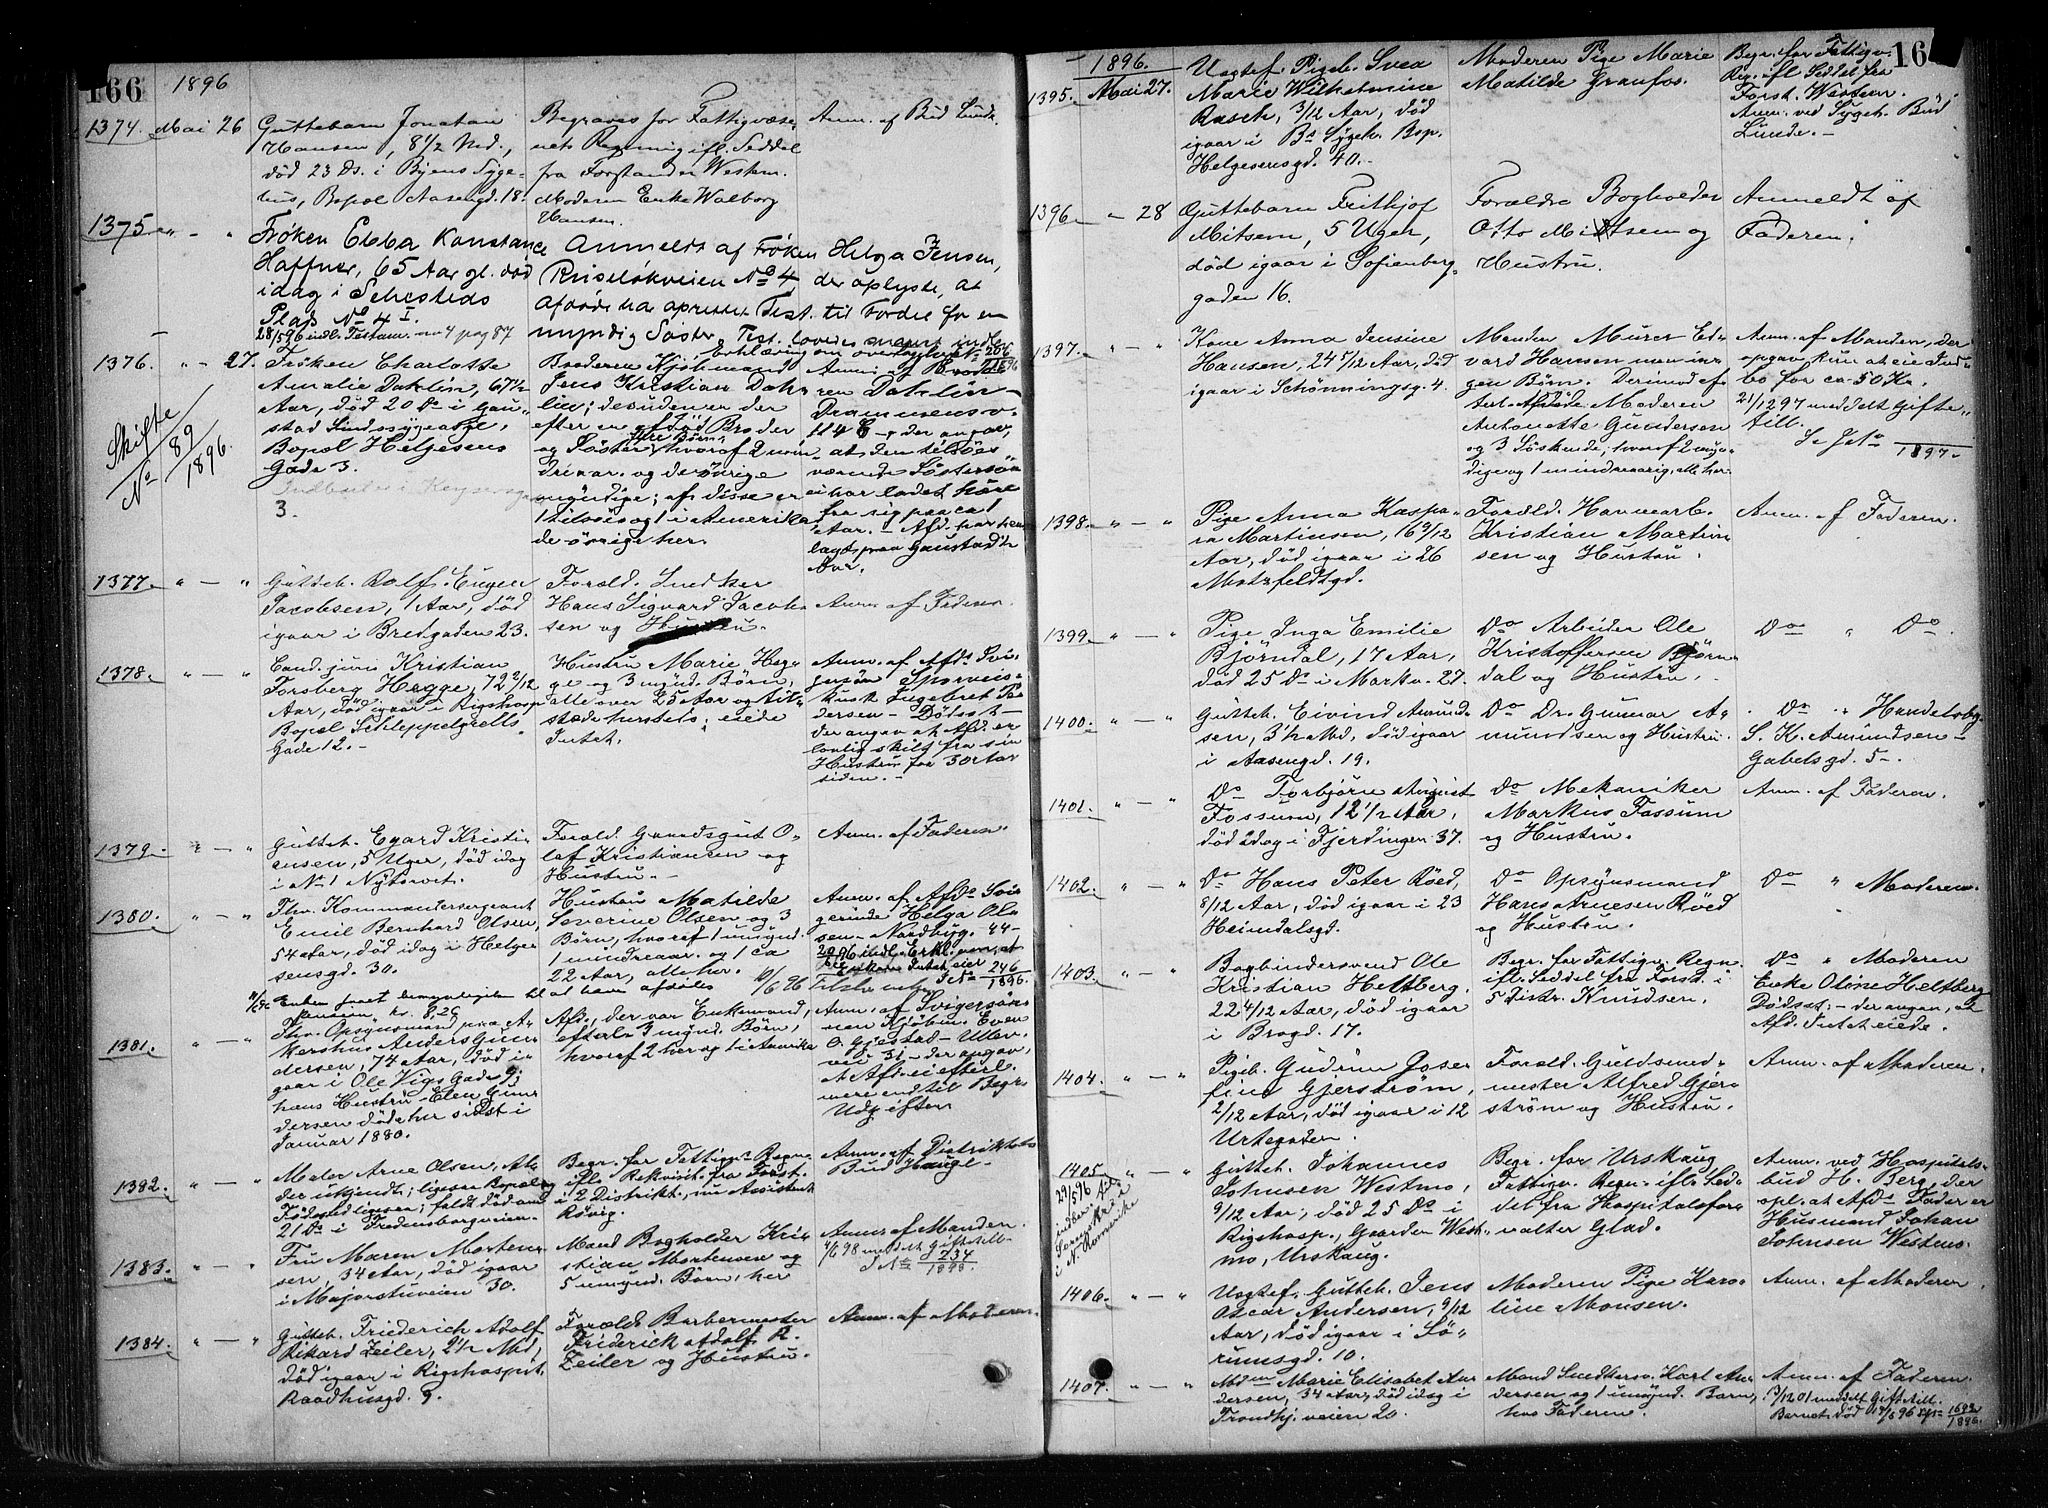 166
1896
1374. Mai 26
Guttebarn Jonatan
Hansen, 8 1/2 Md.,
död 23 Ds. i Byens Syge-
hus, Bopæl Aasengd. 18.
Begraves for Fattigvæse-
nets Regning ifl. Seddel
fra Forstander Western.
Moderen Enke Walborg
Hansen.
Anm. af Bud Lunde.
1375. " - "
Frøken Ebba Konstance
Haffner, 65 Aar gl. död
idag i Sehesteds
Plads No 4 I
28/5 96 indl. Testam. no 4 pag 87
Anmeldt af Frøken Helga Jensen,
Ruseløkveien No 4, der oplyste, at
Afdøde har oprettet Test. til Fordel for en
myndig Søster. Test. lovedes snarest indl.
1376. " - 27.
Skifte
No 89/1896.
Frøken Charlotte
Amalie Dahlin, 67 1/2
Aar, död 20 Ds i Gau-
stad Sindssygeasyl,
Bopæl Helgesens
Gade 3.
3.
Broderen Kjöbmand
Jens Kristian Dah-
lin; desuden er der
efter en afdöd Broder
og Søster hvoraf 2 min-
dreaar. og de övrige
myndige; af disse er
1 tilsös og 1 i Amerika
de övrige her.
Anm. af Brode-
ren Dahlin -
Drammensv.
114 - der angav,
at den tilsöes
værende Søstersøn
ei har ladet höre
fra sig paa ca 1
Aar. - Afd. har hen-
lagt paa Gaustad i
Aar.
1377. " - "
Gutteb. Rolf Eugen
Jacobsen, 1 Aar, död
igaar i Bredgaden 23.
Foræld. Snedker
Hans Sigvard Jacob-
sen og Hustru.
Anm. af Faderen.
1378. " - "
Cand. juris Kristian
Forsberg Hegge, 72 2/12
Aar, död igaar i Rigshosp.
Bopæl Schleppegrells
Gade 12. -
Hustru Marie Heg-
ge og 3 mynd. Börn,
alle over 25 Aar og til-
stede herstets; eiede
Intet.
Anm. af Afds. Svi-
gersön Sporveis-
kusk Ingebret Pe-
dersen - Dödsst. -
der angav at Afd. er
lovlig skilt fra sin
Hustru for 30 Aar
siden. -
1379. " - "
Gutteb. Egard Kristi-
ensen, 5 Uger, död idag
i No 1 Nytorvet.
Foræld. Gaardsgut O-
laf Kristiansen og
Hustru. -
Anm. af Faderen.
1380. " - "
Fhv. Kommandersergeant
Emil Bernhard Olsen,
54 Aar, död idag i Helge-
sensgd. 30.
Hustru Matilde
Severine Olsen og 3
Börn, hvoraf 1 umynd.
1 mindreaar. og 1 ca
22 Aar, alle her.
Anm. af Afds. Svi-
gerinde Helga Ol-
sen - Nordbyg. 44 -
246/1896.
1381. " - "
Fhv. Opsynsmand paa A-
kershus Anders Gun-
dersen, 74 Aar, död i-
gaar i Ole Vigs Gade 9;
hans Hustru Elen Gun-
dersen döde her sidst i
Januar 1880.
Afd., der var Enkemand,
efterl. 3 mynd. Börn,
hvoraf 2 her og 1 i Amerika
Anm. af Svigersön-
nen Kjöbm. Even
O. Gjestad - Ullev.
vei 31 - der angav,
at Afd. ei efterl.
mere end til Begr.
Udgifter
1382. " - "
Maler Arne Olsen, Al-
der ukjendt; ligesaa Bopæl og
Födsed linsen; faldt död om
21 Ds i Fredensborgveien.
Begr. for Fattigv. Regn.
ifl. Rekvisit. fra Forst.
i 2 Distrikt, nu Assistent
Rövig.
Anm. af Distriktets
Bud Hauge -
1383. " - "
Fru Maren Morten-
sen, 34 Aar, död igaar
i Majorstuveien 30.
Mand Bogholder Kri-
stian Mortensen og
5 umynd. Börn, her
Anm. af Manden.
4/6 98 meddelt Giftetill.
J No 734/1898
1384. " - "
Gutteb. Friederich Adolf
Rikard Zeiler, 2 1/2 Md,
död igaar i Rigshospit.
Raadhusgd. 9.
Foræld. Barbermester
Friderich Adolf R.
Zeiler og Hustru.
Anm. af Moderen.
16
1896.
1395. Mai 27.
Uægtef. Pigeb. Svea
Marie Wilhelmine
Rasch, 3/12 Aar, död
igaar i Bs Sygeh. Bop.
Helgesensgd. 40. -
Moderen Pige Marie
Matilde Granfos.
Begr. for Fattigv.
Reg. ifl. Seddel fra
Forst. Western.
Anm. ved Sygeh. Bud
Lunde. -
1396. " - 28
Guttebarn Frithjof
Mitsem, 5 Uger,
död igaar i Sofienberg-
gaden 16.
Forældre Bogholder
Otto Mitsem og
Hustru.
Anmeldt af
Faderen.
1397. " - "
Kone Anna Jensine
Hansen, 24 5/12 Aar, död
igaar i Schönningsg. 4.
Manden Murer Ed-
vard Hansen men in-
gen Börn. Derimod ef-
terl. Afdöde Moderen
Antonette Gundersen
og 3 Söskende, hvoraf 2 myn-
dige og 1 mindreaarig, alle her.
Anm. af Manden, der
opgav, kun at eie Ind-
bo for ca. 50 Kr.
21/12 97 meddelt Gifte-
till.
1897.
1398. " - "
Pige Anna Kaspa-
ra Martinsen, 16 9/12
Aar, död igaar i 26
Motzfeldtsgd.
Foræld. Havnearb.
Kristian Martin-
sen og Hustru.
Anm. af Faderen.
1399. " - "
Pige Inga Emilie
Björndal, 17 Aar,
död 25 Ds i Markv. 27.
Do Arbeider Ole
Kristoffersen Björn-
dal og Hustru.
Do " Do.
1400. " - "
Gutteb. Eivind Amund-
sen, 3 1/2 Md, död igaar
i Aasengd. 19.
Do Dr. Gunnar A-
mundsen og Hustru.
Do " Handelsbg.
S. K. Amundsen -
Gabelsgd. 5 -.
1401. " - "
Do Torbjörn August
Fossum, 12 1/2 Aar,
död idag i Fjerdingen 37.
Do Mekaniker
Markus Fossum
og Hustru.
Anm. af Faderen.
1402. " - "
Do Hans Peter Röed,
8/12 Aar, död igaar i 23
Heimdalsgd.
Do Opsynsmand
Hans Arnesen Röed
og Hustru.
Do " Moderen.
1403. " - "
Bogbindersvend Ole
Kristian Heltberg,
22 4/12 Aar, död igaar
i Brogd. 17.
Begr. for Fattigv. Regn.
ifl. Seddel fra Forst. i
5 Distr. Knudsen.
Do " Moderen
Enke Oline Heltberg
Dödsst. - der angav, at
Afd. Intet eiede.
1404. " - "
Pigeb. Gudrun Jose-
fine Gjerström,
2/12 Aar, död igaar i 12
Urtegaden.
Foræld. Guldsmed-
mester Alfred Gjer-
ström og Hustru.
Anm. af Moderen.
1405 " - "
29/5 96
Gutteb. Johannes
Johnsen Westmo,
9/12 Aar, död 25 Ds i
Rigshosp., Gaarden West-
mo, Urskaug.
Begr. for Urskaug
Fattigv. Regn. ifl. Sed-
del fra Hospitalsfor-
valter Glad.
Anm. ved Hospitals-
bud H. Berg, der
opl. at Afds Fader er
Husmand Johan
Johnsen Westmo.
1406. " - "
Uægtef. Gutteb. Jens
Oscar Andersen, 9/12
Aar, död igaar i Sö-
rumsgd. 10.
Moderen Pige Karo-
line Monsen.
Anm. af Moderen
1407. " - "
Mdm Marie Elisabet An-
dersen, 34 Aar, död idag i
Trondhj. veien 20.
Mand Snedkersv. Karl An-
dersen og 1 umynd. Barn,
hos Faderen.
Anm. af Faderen.
meddelt Giftetill.
Barnet död